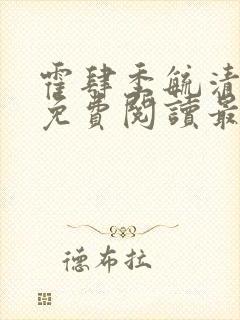 霍肆季毓清
免費閱讀最
德布拉